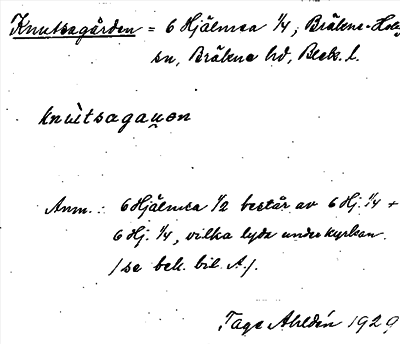 Knutsagården = 6 Hjälmsa 1/4, Bräkne-Hoby
sn, Bräkne hd, Blek. l.
knùtsagaṇon
Anm.: 6 Hjälmsa 1/2 består av 6 Hj. 1/4 +
6 Hj. 1/4, vilka lyda under kyrkan.
/se bek. bil. A./.
Tage Ahldén 1929